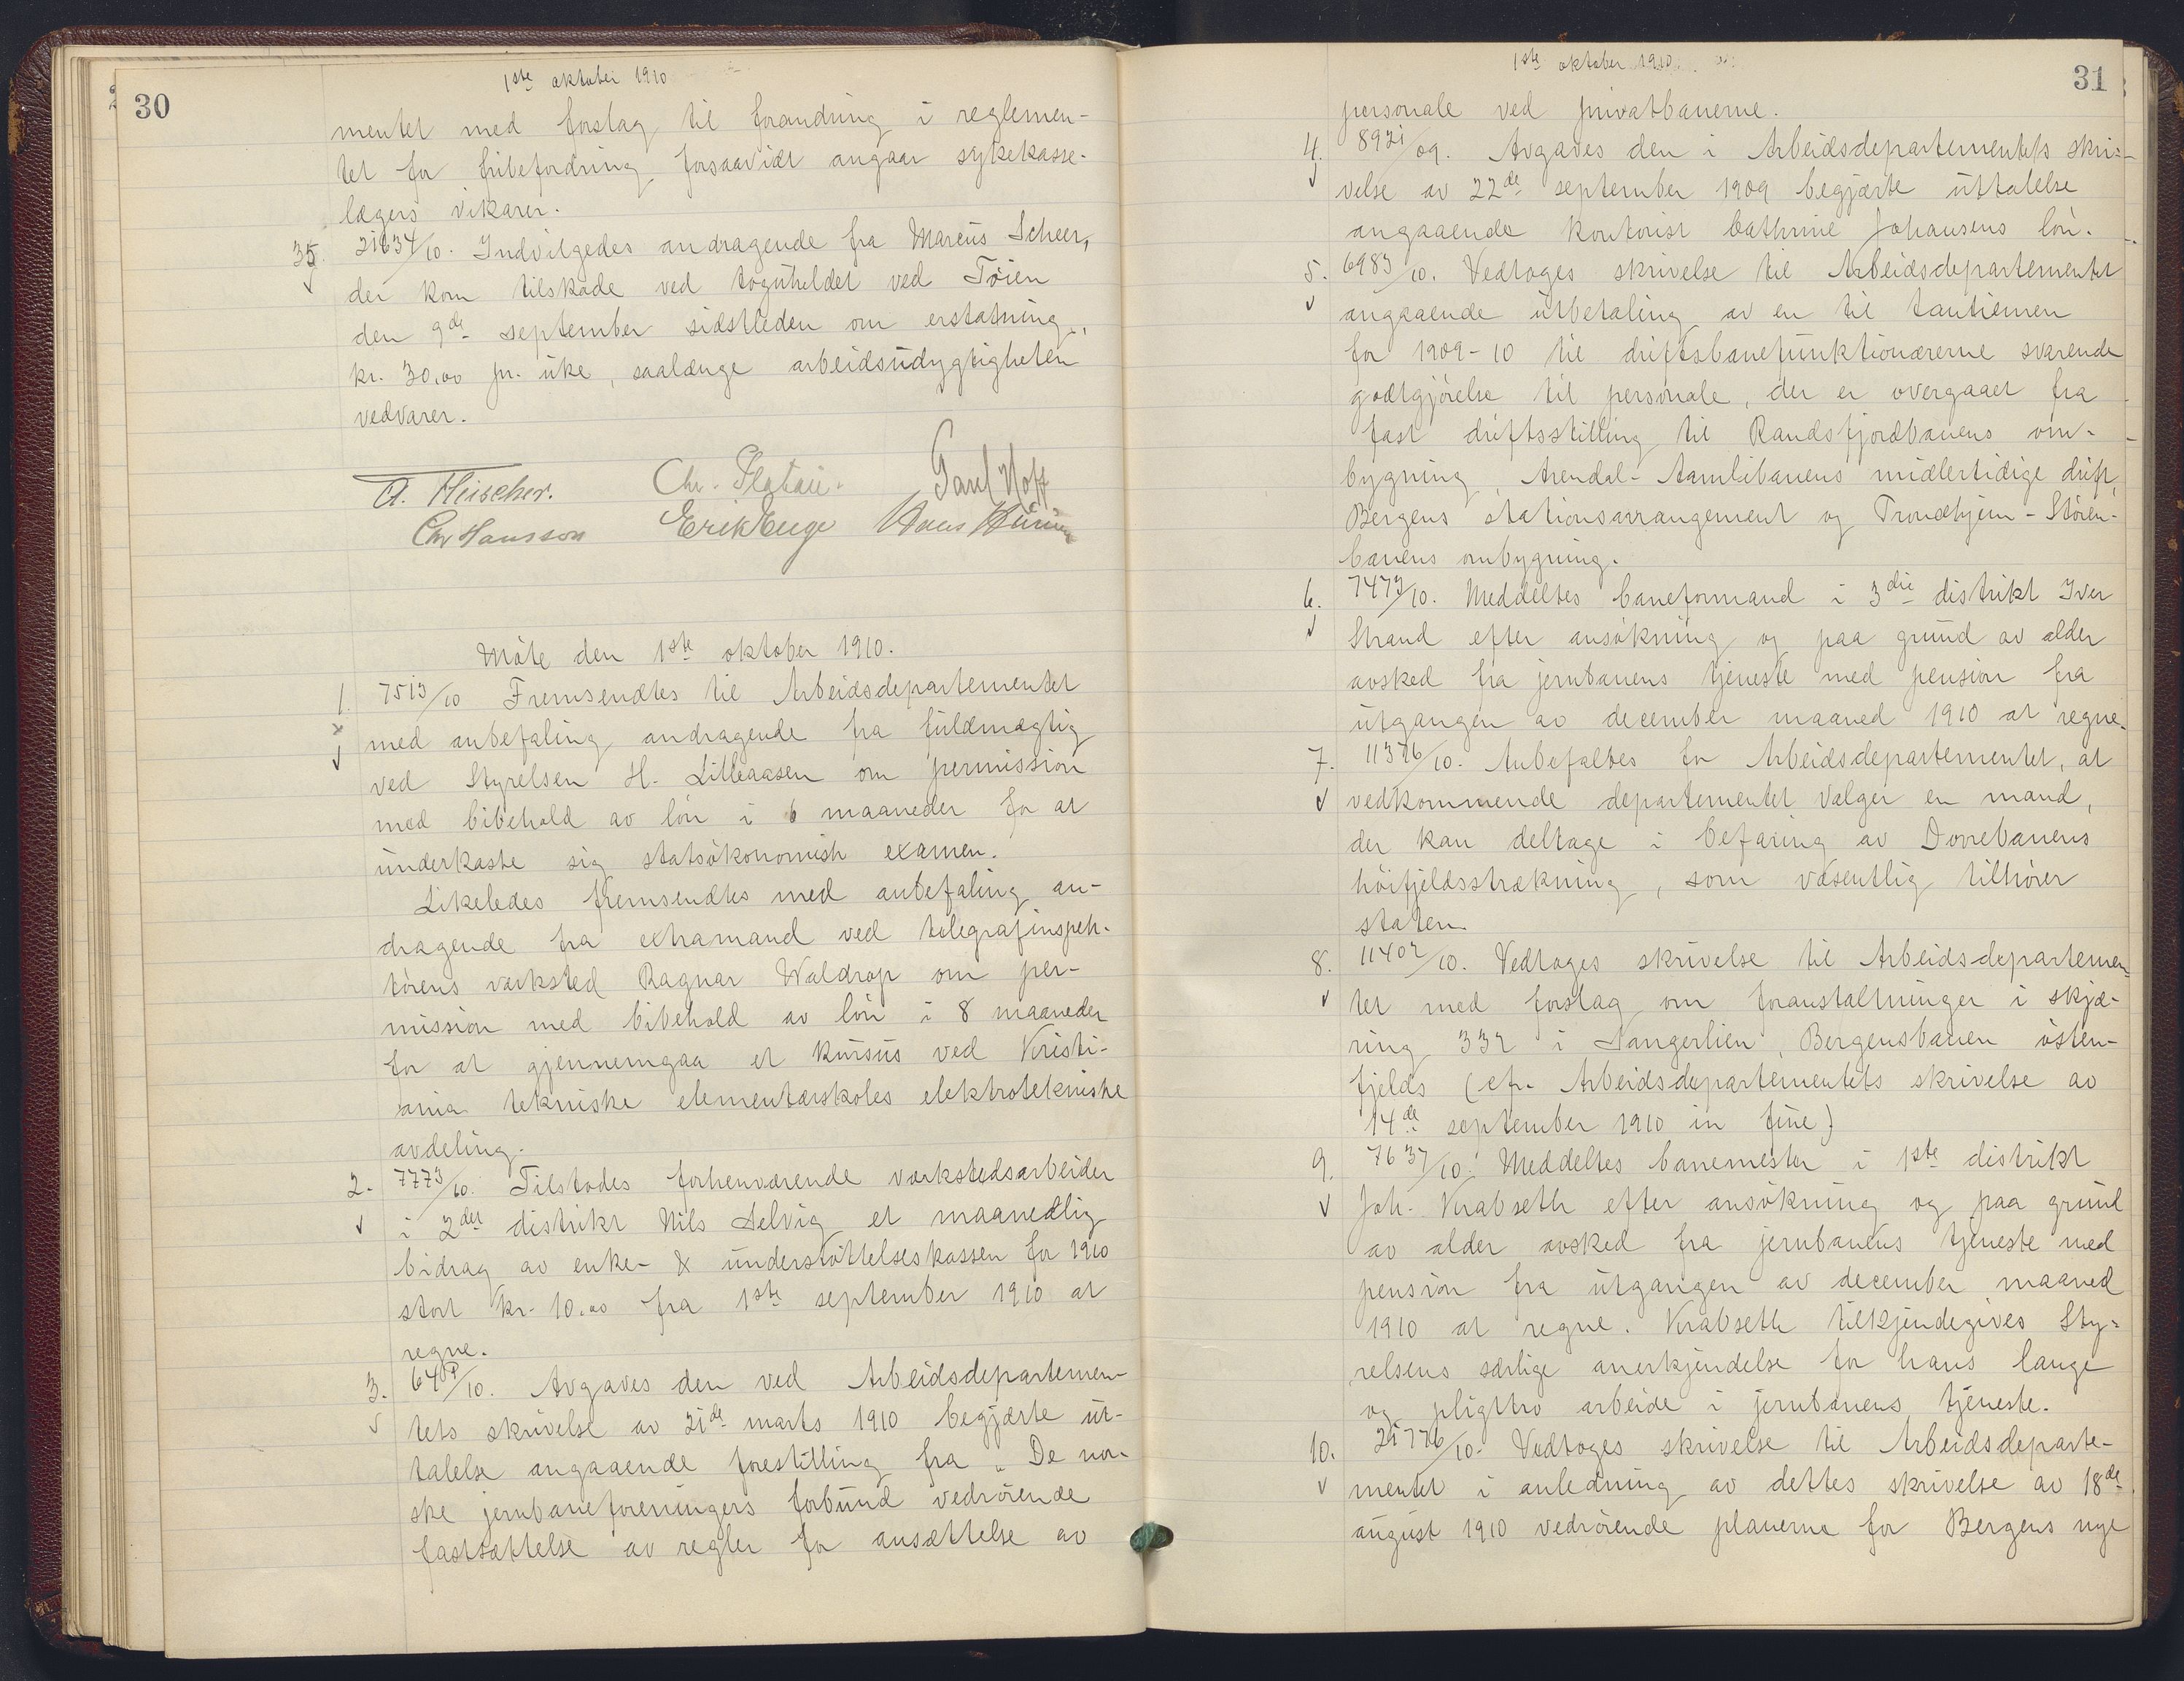 30
1ste oktober 1910
mentet med forslag til forandring i reglemen-
tet for fribefordring forsaavidt angaar sykekasse-
lægers vikarer.
35. 21634/10. Indvilgedes andragende fra Marcus Scheer,
der kom tilskade ved toguheldet ved Tøien
den 9de september sidstleden om erstatning,
kr. 30,00 pr. uke, saalænge arbeidsudygtigheten
vedvarer.
Chr. Platou. Paul Hoff
Chr Hansson Erik Enge Hans
Møte den 1ste oktober 1910.
1. 7513/10 Fremsendtes til Arbeidsdepartementet
med anbefaling andragende fra fuldmægtig
ved Styrelsen H. Lilleaasen om permission
med bibehold av løn i 6 maaneder for at
underkaste sig statsøkonomisk examen.
Likeledes fremsendtes med anbefaling an-
dragende fra extramand ved telegrafinspek-
tørens verksted Ragnar Waldrop om per-
mission med bibehold av løn i 8 maaneder
for at gjennemgaa et kursus ved Kristi-
ania tekniske elementærskoles elektrotekniske
avdeling.
2. 7773/10. Tilstodes forhenværende verkstedsarbeider
i 2det distrikt Nils Selvig et maanedlig
bidrag av enke- & understøttelseskassen for 1910
stort kr. 10.00 fra 1ste september 1910 at
regne.
3. 64/10. Avgaves den ved Arbeidsdepartemen-
tets skrivelse av 21de marts 1910 begjærte ut-
talelse angaaende forestilling fra „De nor-
ske jernbaneforeningers forbund vedrørende
fastsættelse av regler for ansættelse av
31
1ste oktober 1910.
personale ved privatbanerne.
4. 8921/09. Avgaves den i Arbeidsdepartementets skri-
velse av 22de september 1909 begjærte uttalelse
angaaende kontorist Cathrine Johansens løn.
5. 6983/10. Vedtoges skrivelse til Arbeidsdepartementet
angaaende utbetaling av en til tantiemen
for 1909-10 til driftsbanefunktionærerne svarende
godtgjørelse til personale, der er overgaaet fra
fast driftsstilling til Randsfjordbanens om-
bygning, Arendal-Aamlibanens midlertidige drift,
Bergens stationsarrangement og Trondhjem-Støren-
banens ombygning.
6. 7473/10. Meddeltes baneformand i 3die distrikt Iver
Strand efter ansøkning og paa grund av alder
avsked fra jernbanens tjeneste med pension fra
utgangen av december maaned 1910 at regne.
7. 11376/10. Anbefaltes for Arbeidsdepartementet, at
vedkommende departementet vælger en mand,
der kan deltage i befaring av Dovrebanens
høifjeldsstrækning, som væsentlig tilhører
staten.
8. 11402/10. Vedtoges skrivelse til Arbeidsdepartemen-
tet med forslag om foranstaltninger i skjæ-
ring 332 i Slangerlien, Bergensbanen østen-
fjelds (cfr. Arbeidsdepartementets skrivelse av
14de september 1910 in fine)
9. 7637/10. Meddeltes banemester i 1ste distrikt
Joh. Krabseth efter ansøkning og paa grund
av alder avsked fra jernbanens tjeneste med
pension fra utgangen av december maaned
1910 at regne. Krabseth tilkjendegives Sty-
relsens særlige anerkjendelse for hans lange
og pligttro arbeide i jernbanens tjeneste.
10. 21776/10. Vedtoges skrivelse til Arbeidsdeparte-
mentet i anledning av dettes skrivelse av 18de
august 1910 vedrørende planerne for Bergens nye